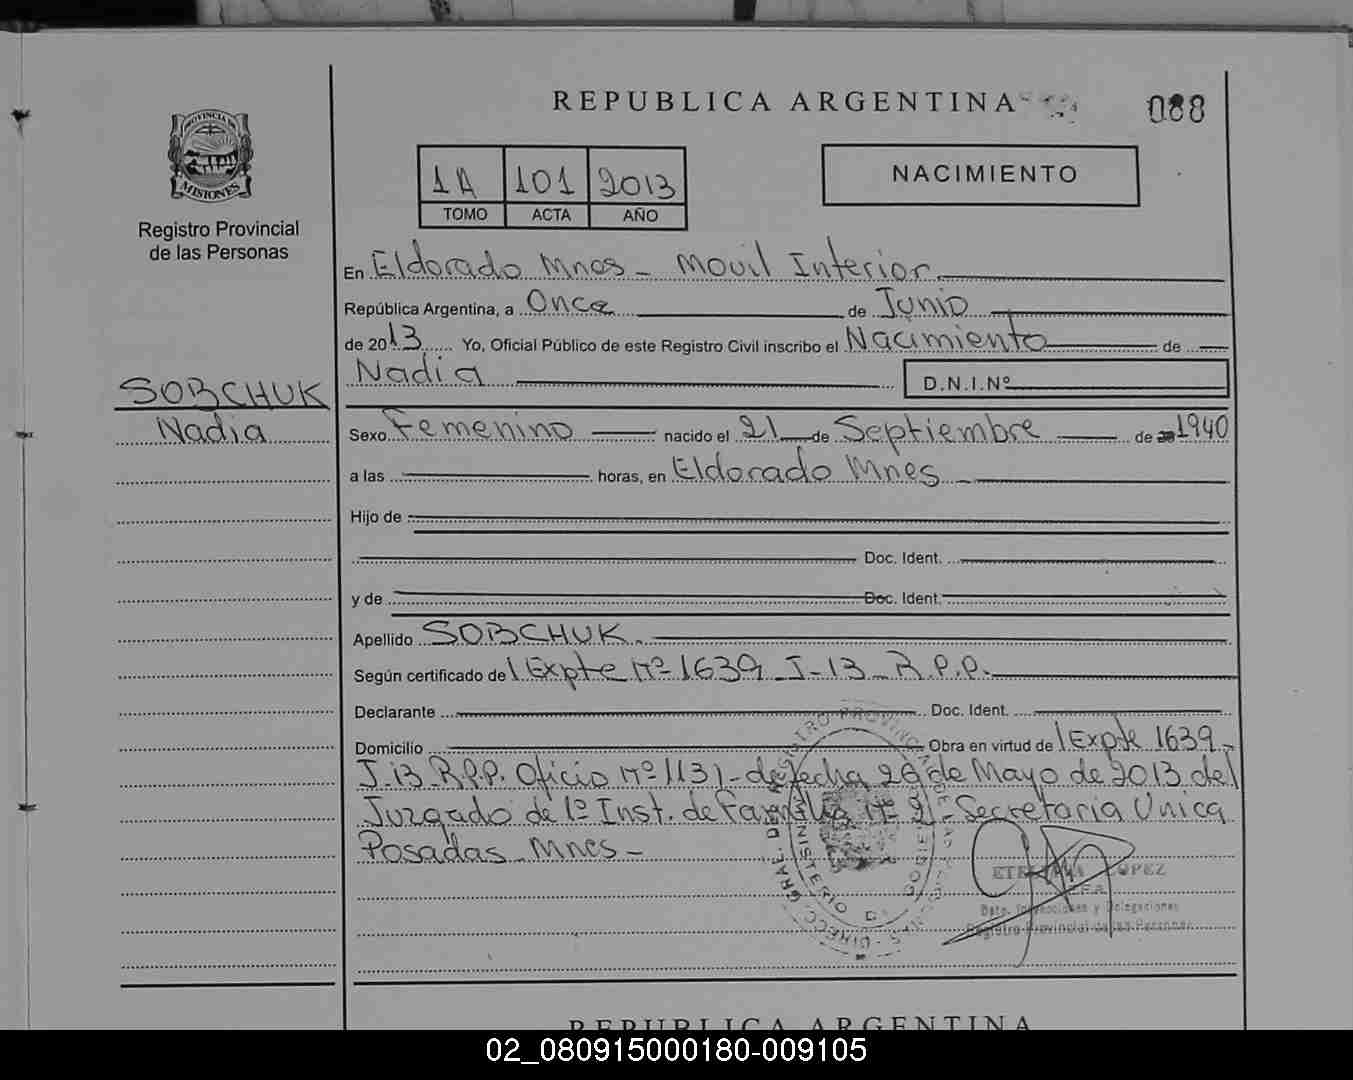 REPUBLICA ARGENTINA
088
PROVINCIA DE
MISIONES
Registro Provincial
de las Personas
1A 101 2013
TOMO ACTA AÑO
NACIMIENTO
En Eldorado Mnes - Movil Interior
República Argentina, a Once de Junio
de 2013 Yo, Oficial Público de este Registro Civil inscribo el Nacimiento de
Nadia D.N.I.Nº
SOBCHUK
Nadia
Sexo Femenino nacido el 21 de Septiembre de 1940
a las horas, en Eldorado Mnes -
Hijo de
Doc. Ident.
y de Doc. Ident.
Apellido SOBCHUK.
Según certificado de Expte Nº 1639 J-13 R.P.P.
Declarante Doc. Ident.
Domicilio Obra en virtud de Expte 1639-
J-13 R.P.P. Oficio Nº 1131- de fecha 26 de Mayo de 2013 del
Juzgado de 1º Inst. de Familia Nº 2 - Secretaria Unica
Posadas Mnes -
LOPEZ
Dpto. Inspecciones y Delegaciones
Registro Provincial de las Personas
REPUBLICA ARGENTINA
02_080915000180-009105